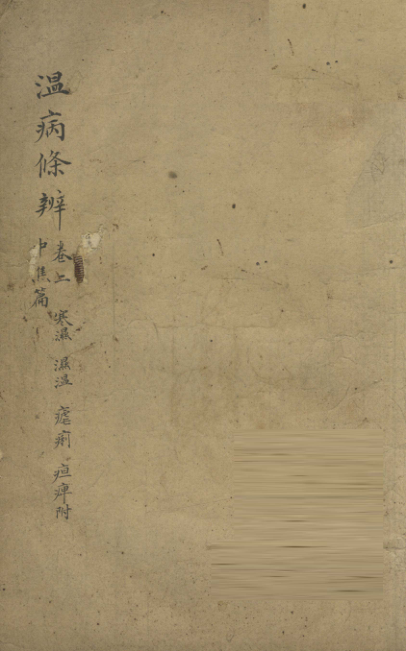 溫病條辨
卷上 寒濕 濕溫 瘧痢 疸痺附
中焦篇